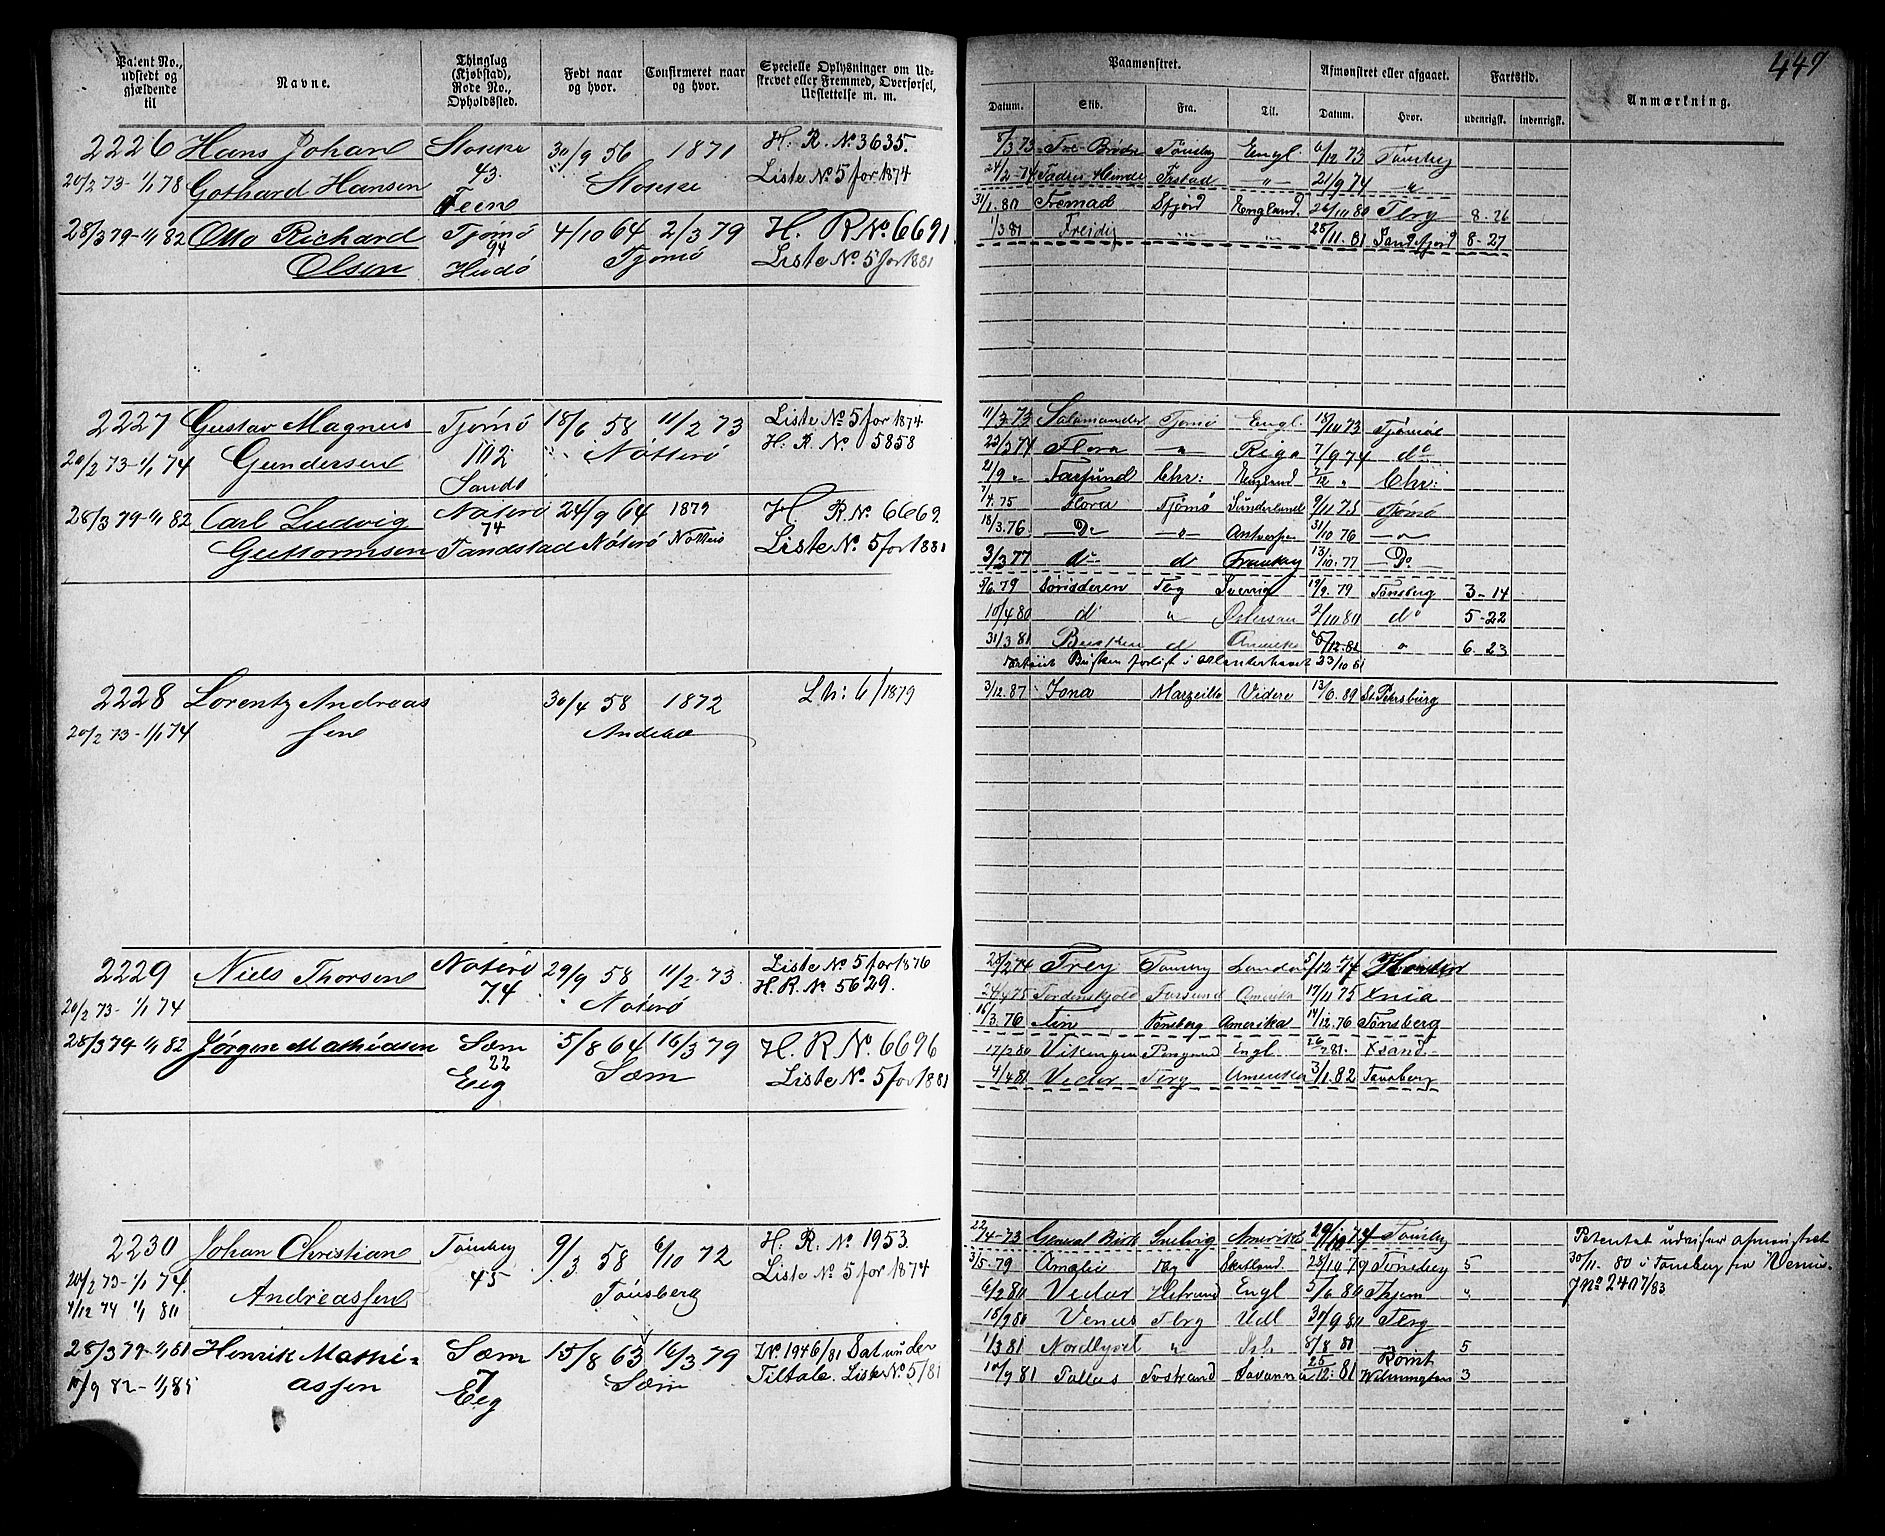 449
Patent No., udstedt og gjældende til
Navne.
Thinglag (Kjøbstad), Rode No., Opholdssted.
Født naar og hvor.
Confirmeret naar og hvor.
Specielle Oplysninger om Udskrevet eller Fremmed, Overførsel, Udslettelse m. m.
Paamønstret.
Datum. Skib. Fra. Til.
Afmønstret eller afgaaet.
Datum. Hvor.
Fartstid.
udenrigsk. indenrigsk.
Anmærkning.
2226 Hans Johan Stokke 30/9 56 1871 H. R. No 3635.
20/2 73-1/1 78 Gothard Hansen 43 Stokke Liste No 5 for 1874
28/3 79-1/1 82 Otto Richard Tjømø 4/10 64 2/3 79 H. R No 6691.
Olsen 94 Hudø Tjømø Liste No 5 for 1881
8/3 73 Tønsberg Engl 73 Tønsberg
21/9 74 "
31/1. 80 Fremad Sfjord England 80 Tbrg 8-26
1/3 81 81 Sandefjord 8-27
2227 Gustav Magnus Tjømø 18/6 58 11/2 73 Liste No 5 for 1874
20/2 73-1/1 74 Gundersen 102 Nøtterø H. R. No 5858
Sandø
28/3 79-1/1 82 Carl Ludvig Nøterø 24/9 64 1879 H R. No 6669.
Guttormsen 74 Nøterø Liste No. 5 for 1881
11/3 73 Salamander Tjømø Engl. 18/10 73 Tjømø
23/3 74 Flora " Riga 7/9 74 do
21/9 " Farsund Chr: England Chr:
7/4. 75 Flora Tjømø Sunderland 9/11 75 Tjømø
18/3. 76 Do " Antwerpen 31/10 76 "
3/3 77 do d 13/10. 77 Do
5/6. 79 Tbg Sverrig 19/9. 79 Tønsberg 3-14
10/4 80 do " Østersøen 2/10 80 do 5-22
31/3 81 Busken d Amerika 5/12. 81 " 6. 23
Busken forlist i Atlanterhavet 23/10 81
2228 Lorentz Andreas 30/4 58 1872 Lh: 6/1879
20/2 73-1/1 74 sen Andebu
3/12. 87 Jona Marseille Videre 13/6. 89 St Petersburg
2229 Niels Thorsen Nøterø 29/9 58 11/2 73 Liste No 5 for 1876
20/2 73-1/1 74 74 Nøterø H. R. No 5629.
28/3 79 1/1 82 Jørgen Mathiassen Sæm 5/8 64 16/3 79 H. R No. 6696
22 Eeg Sæm Liste No. 5 for 1881
28/2 74 Frey Tønsberg London 5/12. 74
24/4 75 Tordenskjold Farsund Amerika 17/11 75 Xnia
16/3. 76 Tønsberg Amerika 14/12. 76 Tønsberg
17/2 80 Vikingen Engl 81. Xsand
4/4 81 Vedar Tbrg Amerika 3/1. 82 Tønsberg
2230 Johan Christian Tønsberg 9/3 58 6/10 72 H. R. No 1953.
20/2 73-1/1 74. 45 Liste No 5 for 1874
4/12 74 1/1 80 Andreassen Tønsberg
28/3 79-1/1 81 Henrik Mathi= Sæm 15/8 63 16/3 79 JNo 1946/81 Sat under
10/9 82-1/1 85 assen 7 Eeg Sæm Tiltale. Liste No 5/81
22/4-73 General Birch Amerika 74 Tønsberg
3/5-79 Amalie Tbg Skotland. 28/10 79 Tønsberg 5
6/2 80 Vedar Engl 5/6. 80 "
18/9 80 Venus Tbrg Udl 30/9 80 Tbrg
1/3 81 Nordlyset " Ish. 8/8 81 5
10/9 81 Pallas Savanna 25/12. 81 Wilmington 3
Patentet udviser afmønstret
30/11. 80 i Tønsberg fra Venus.
JNo 2407/83